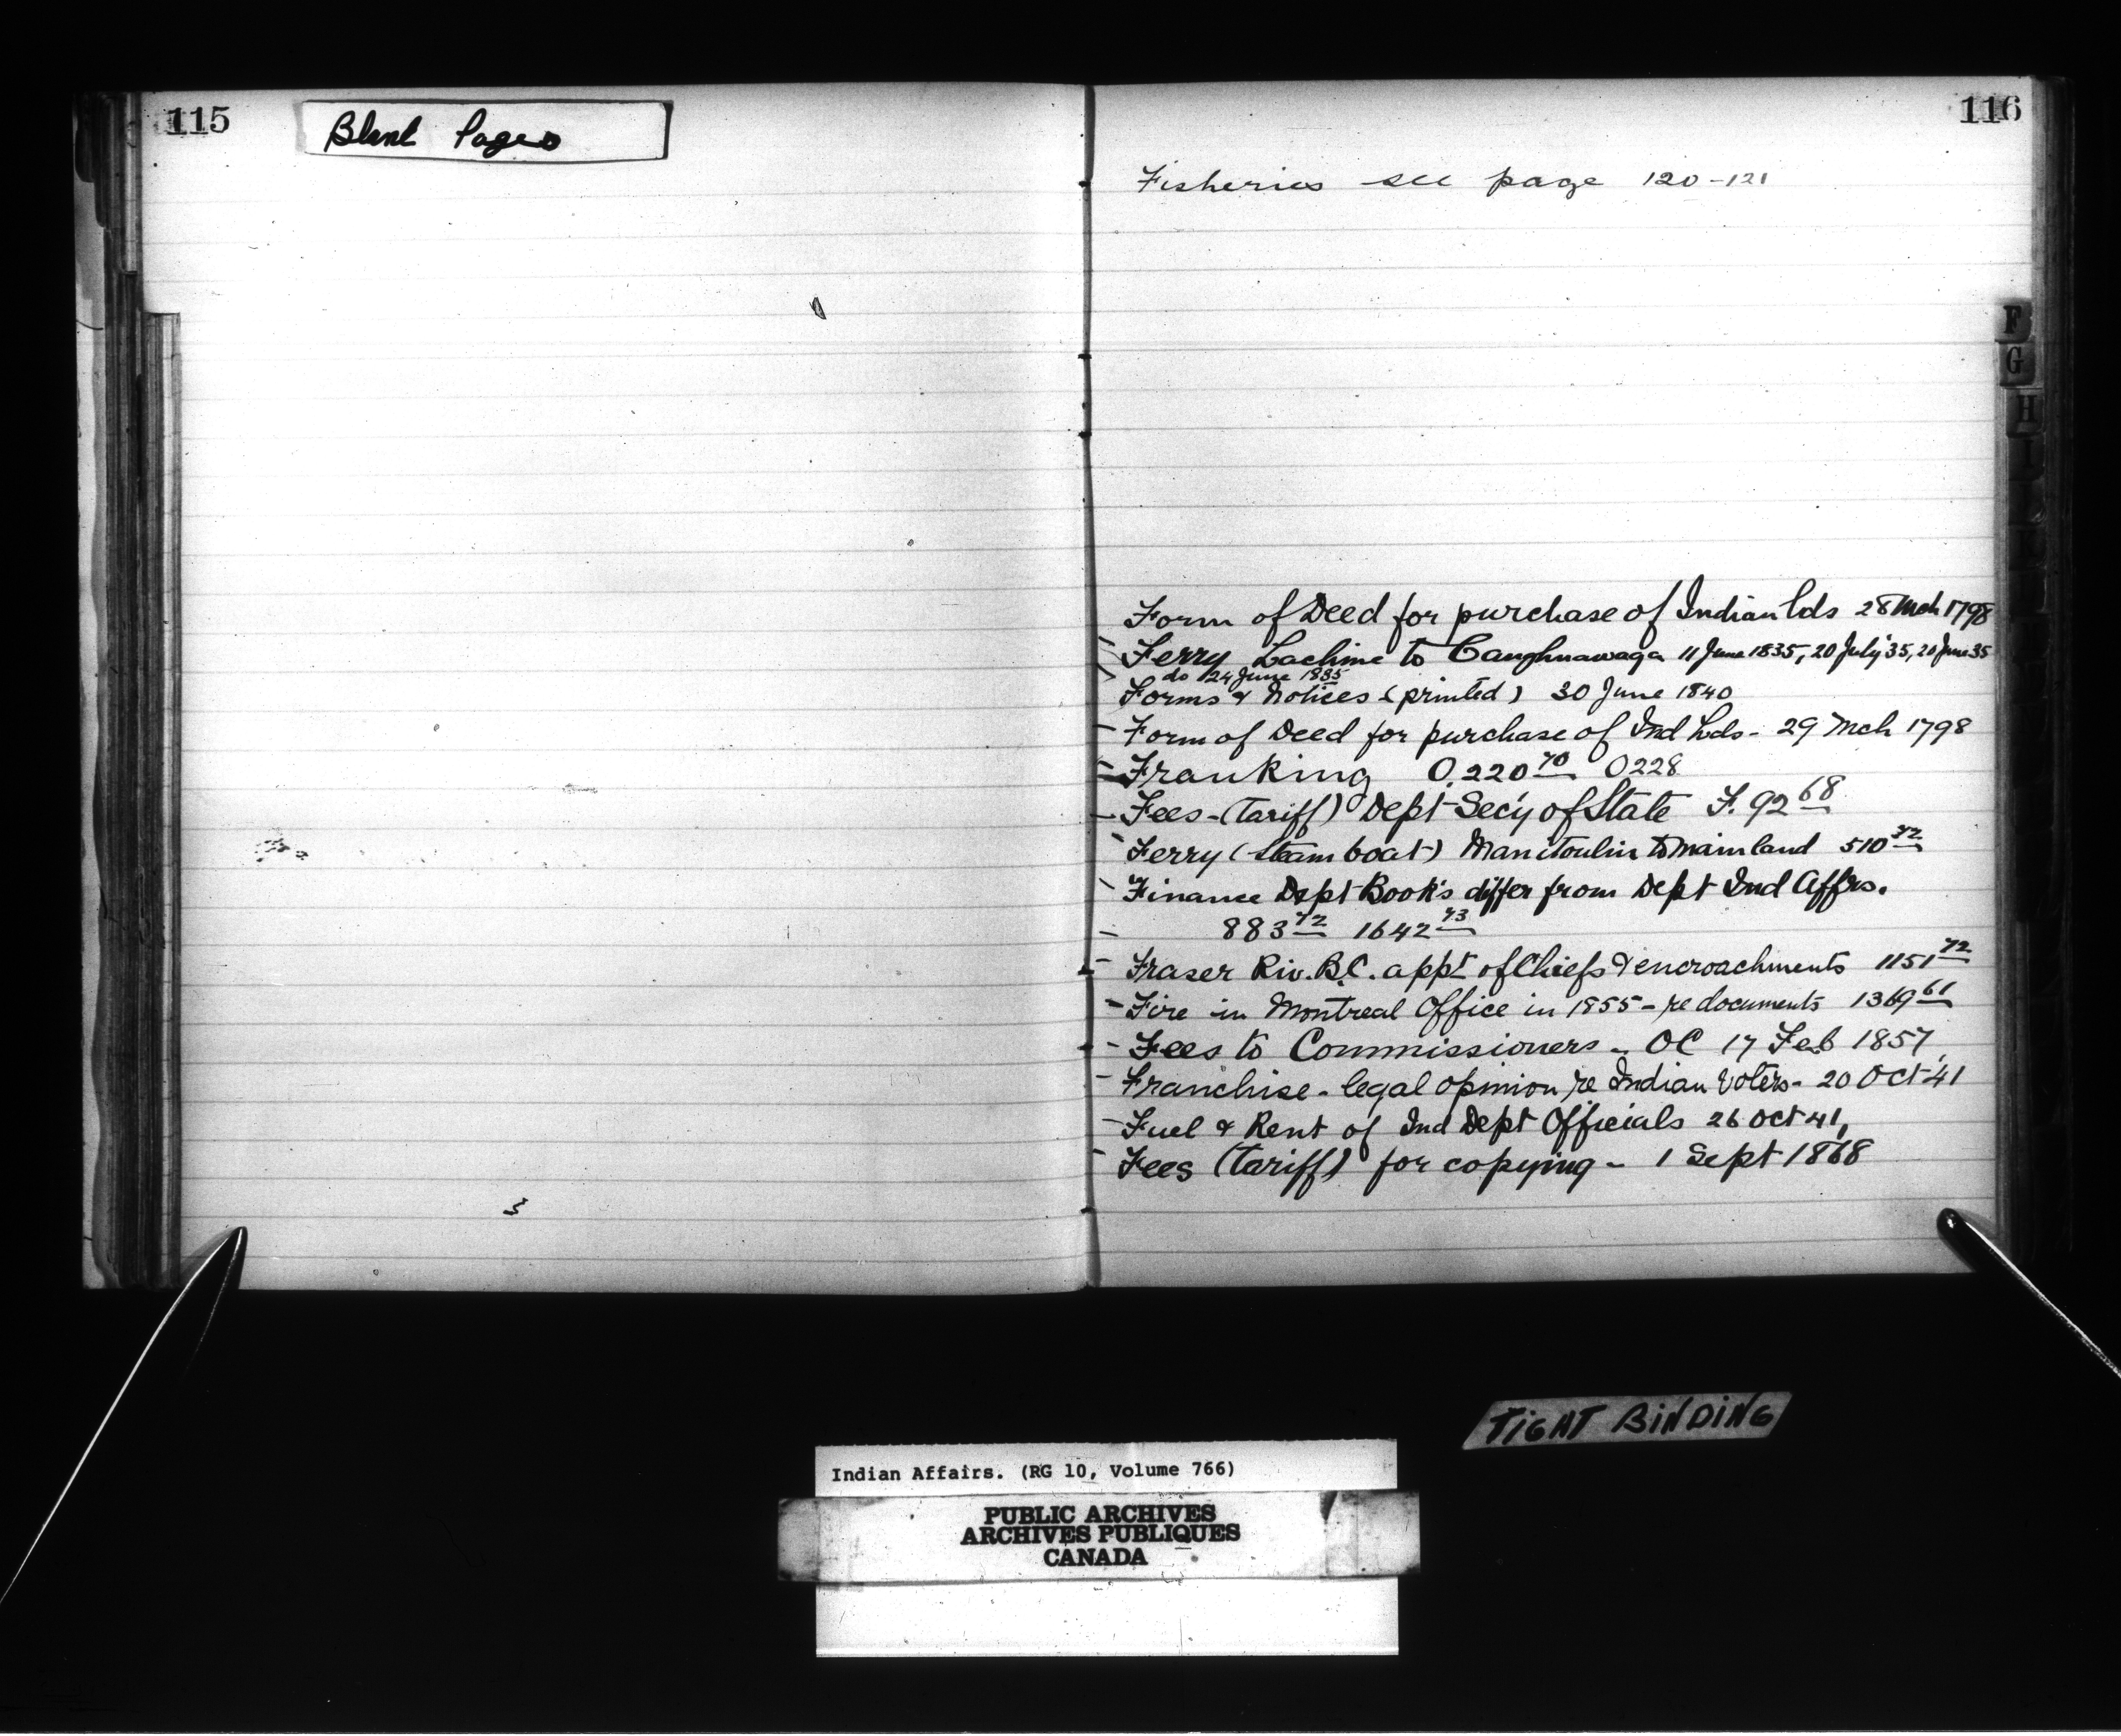 115
Blank Pages
116
Fisheries see page 120-121
F
G
H
I
Form of Deed for purchase of Indian lds 28 Mch 1798
Ferry Lachine to Caughnawaga 11 June 1835, 20 July '35, 20 June 35
do 24 June 1835
Forms & Notices (printed) 30 June 1840
- Form of Deed for purchase of Ind Lds - 29 Mch 1798
- Franking O.220 70 O228
- Fees - (Tariff) Dept Sec'y of State F. 92 68
- Ferry (Steam boat) Manitoulin to mainland 510 72
- Finance Dept Book's differ from Dept Ind Affrs.
- 883 72 1642 73
- Fraser Riv. B.C. appt of Chiefs & encroachments 1151 72
- Fire in Montreal Office in 1855 - re documents 1369 61
- Fees to Commissioners - OC 17 Feb 1857
- Franchise - legal opinion re Indian Voters - 20 Oct '41
- Fuel & Rent of Ind Dept Officials 26 Oct 41,
- Fees (Tariff) for copying - 1 Sept 1868
TIGHT BINDING
Indian Affairs. (RG 10, Volume 766)
PUBLIC ARCHIVES
ARCHIVES PUBLIQUES
CANADA